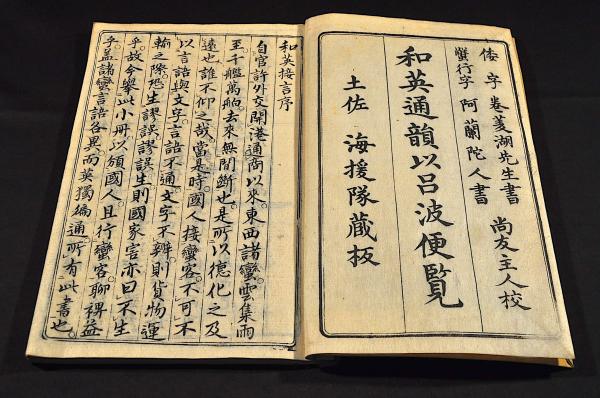 倭字 巻菱湖先生書
蟹行字 阿蘭陀人書
尚友主人校
和英通韻以呂波便覧
土佐 海援隊蔵板
和英接言序
自官許外交開港通商以來東西諸蠻雲集雨
至千艦萬舶去來無間斷也是所以德化之及
遠也誰不仰之哉當是時國人接蠻客不可不
以言語與文字言語不通文字不辨則貨物運
輸之際恐生謬誤謬誤生則國家害亦曰不生
乎故今擧此小册以頒國人且行蠻客聊裨益
乎盖諸蠻言語各異而英獨編通所有此書也